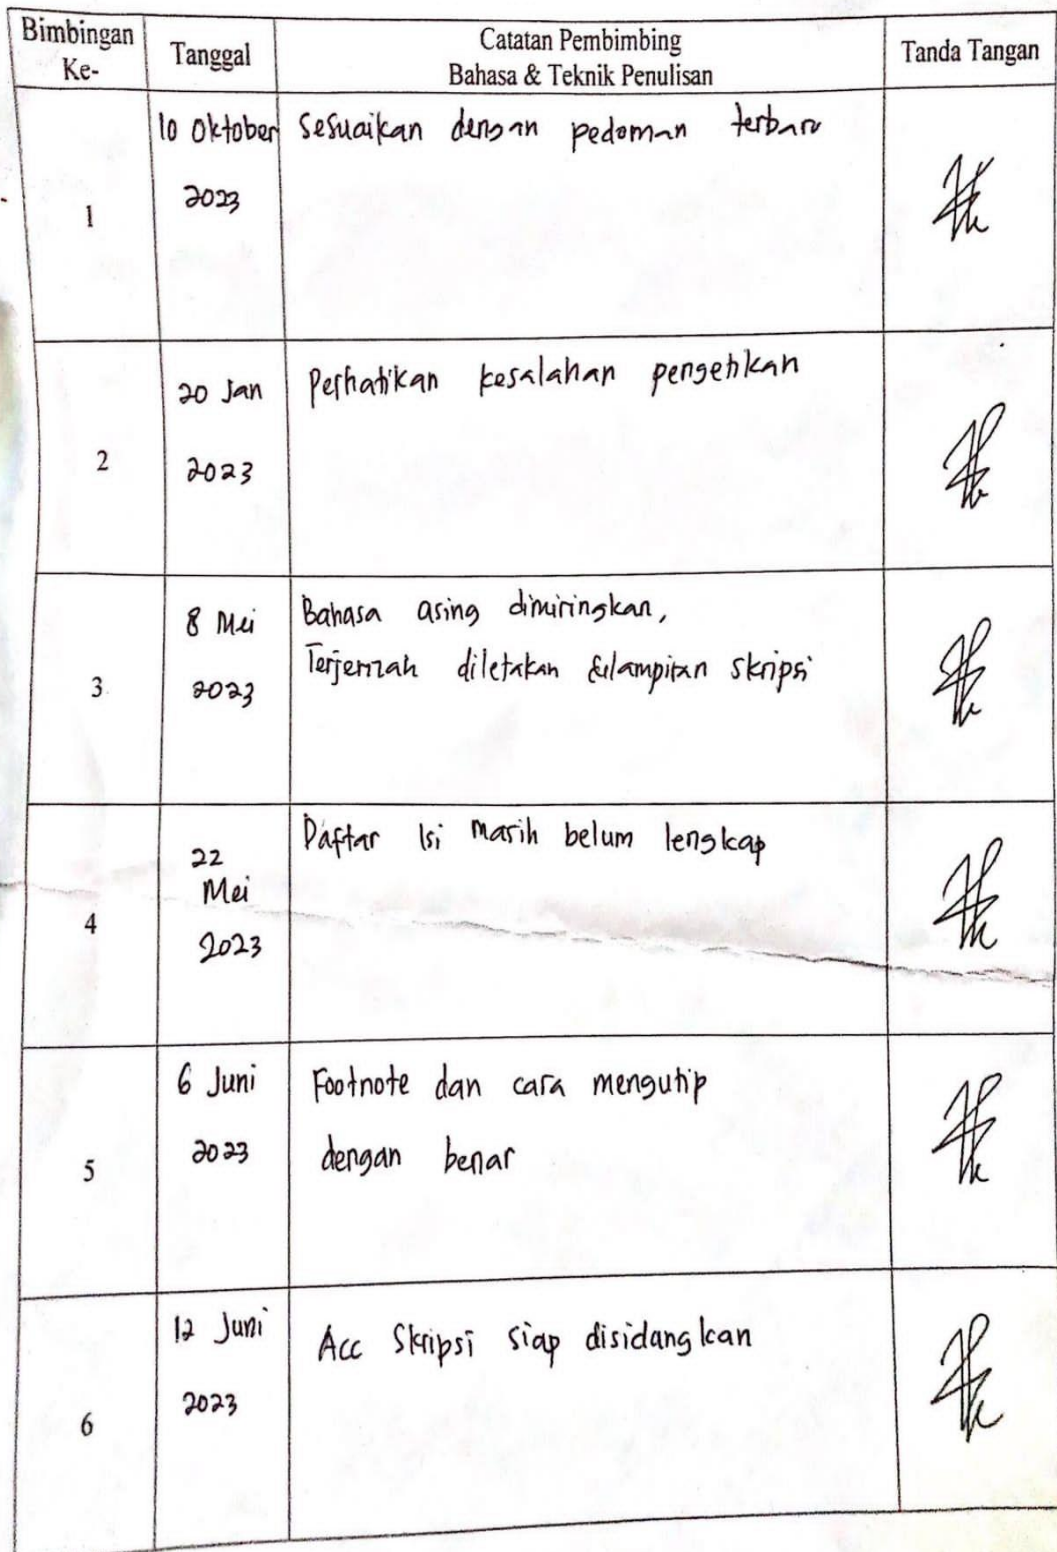 Bimbingan
Ke-
Tanggal
Catatan Pembimbing
Bahasa & Teknik Penulisan
Tanda Tangan
1
10 Oktober
2023
Sesuaikan dengan pedoman terbaru
2
20 Jan
2023
Perhatikan kesalahan pengetikan
3
8 Mei
2023
Bahasa asing dimiringkan,
Terjemah diletakan dilampiran skripsi
4
22
Mei
2023
Daftar Isi masih belum lengkap
5
6 Juni
2023
Footnote dan cara mengutip
dengan benar
6
12 Juni
2023
Acc Skripsi siap disidangkan